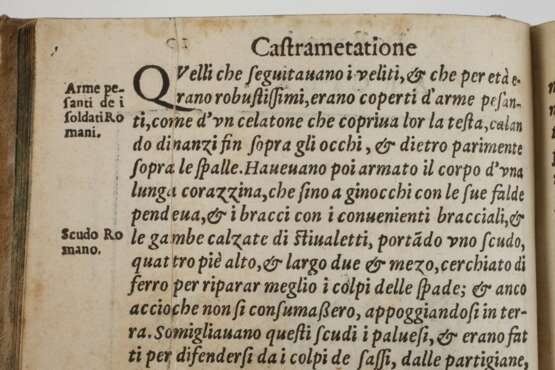 Castrametatione
Arme pe-
santi de i
soldati Ro
mani.
QVelli che seguitauano i veliti, & che per età e-
rano robustissimi, erano coperti d'arme pesan-
ti, come d'vn celatone che copriua lor la testa, calan
do dinanzi fin sopra gli occhi, & dietro parimente
sopra le spalle. Haueuano poi armato il corpo d'vna
lunga corazzina, che sino a ginocchi con le sue falde
pendeua, & i bracci con i conuenienti bracciali, &
Scudo Ro
mano.
le gambe calzate di stiualetti, portãdo vno scudo,
quattro piè alto, & largo due & mezo, cerchiato di
ferro per riparar meglio i colpi delle spade; & anco
accioche non si consumaßero, appoggiandosi in ter-
ra. Somigliauano questi scudi i paluesi, & erano fat
ti per difendersi da i colpi de sassi, dalle partigiane,